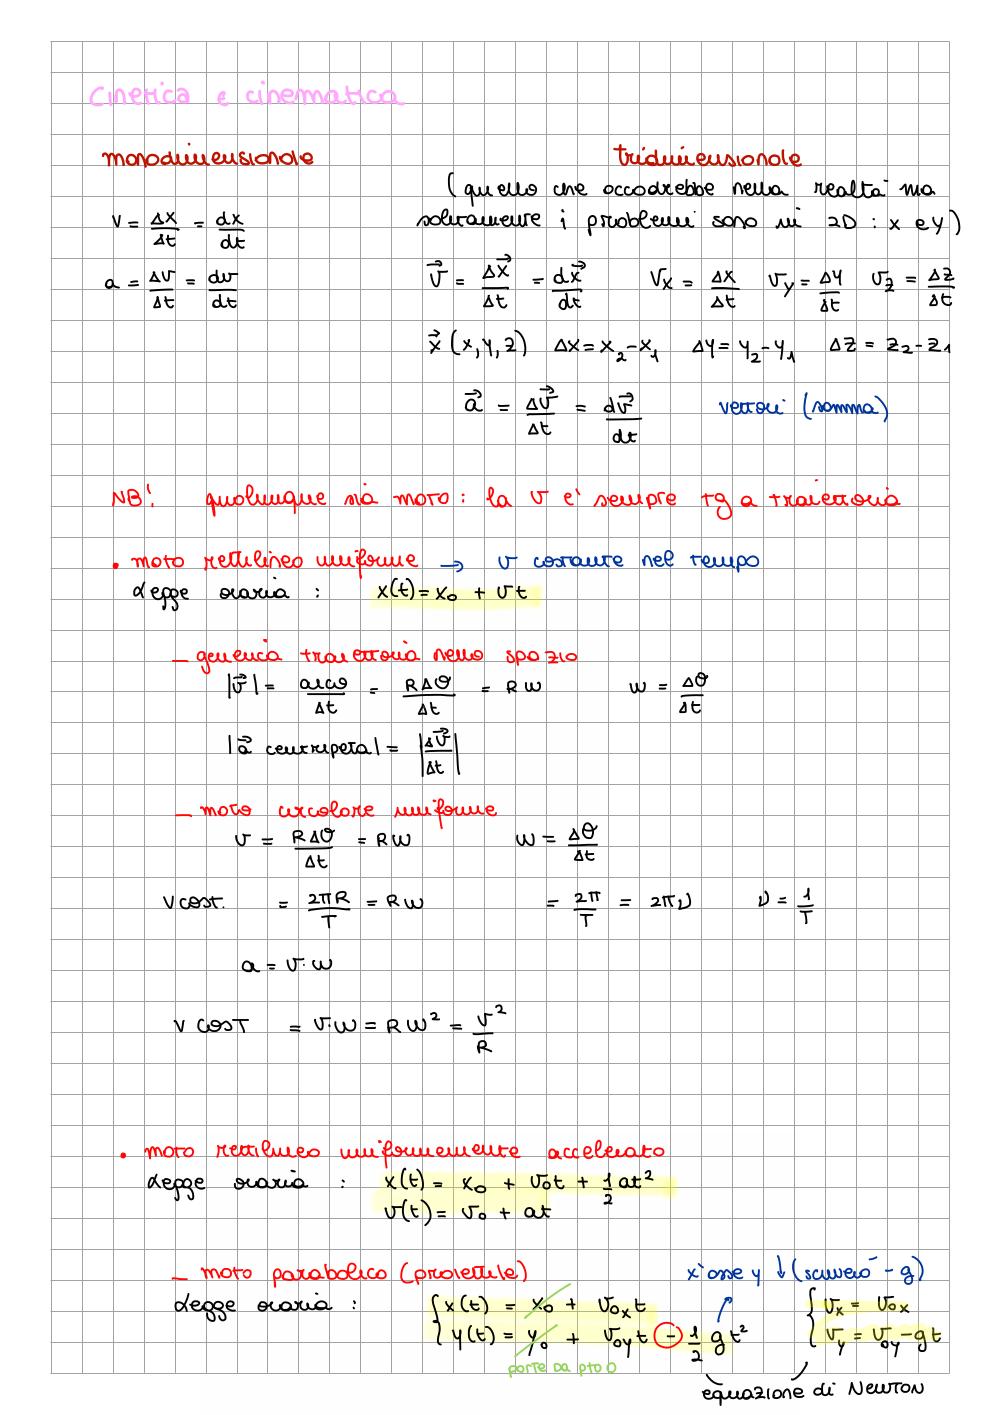 Cinetica e cinematica
monodimensionale
tridimensionale
(quello che accadrebbe nella realtà ma
solitamente i problemi sono in 2D : x e y)
v = Δx/Δt = dx/dt
a = Δv/Δt = dv/dt
v⃗ = Δx⃗/Δt = dx⃗/dt   Vx = Δx/Δt   Vy = Δy/Δt   Vz = Δz/Δt
x⃗ (x,y,z)   Δx = x₂-x₁   Δy = y₂-y₁   Δz = z₂-z₁
a⃗ = Δv⃗/Δt = dv⃗/dt   vettori (somma)
NB! qualunque sia moto : la v è sempre tg a traiettoria
• moto rettilineo uniforme → v costante nel tempo
Legge oraria : x(t) = x₀ + vt
- generica traiettoria nello spazio
|v⃗| = arco/Δt = RΔθ/Δt = Rw   w = Δθ/Δt
|a⃗ centripeta| = |Δv⃗/Δt|
- moto circolare uniforme
v = RΔθ/Δt = Rw   w = Δθ/Δt
v cost. = 2πR/T = Rw   = 2π/T = 2πν   ν = 1/T
a = v·w
v cost = v·w = Rw² = v²/R
• moto rettilineo uniformemente accelerato
Legge oraria : x(t) = x₀ + v₀t + 1/2 at²
v(t) = v₀ + at
- moto parabolico (proiettile)
x' asse y ↓ (scriverò - g)
Legge oraria : { x(t) = x₀ + v₀ₓt   { vₓ = v₀ₓ
y(t) = y₀ + v₀yt - 1/2 gt²   vy = v₀y - gt
parte da pto 0
equazione di NEWTON